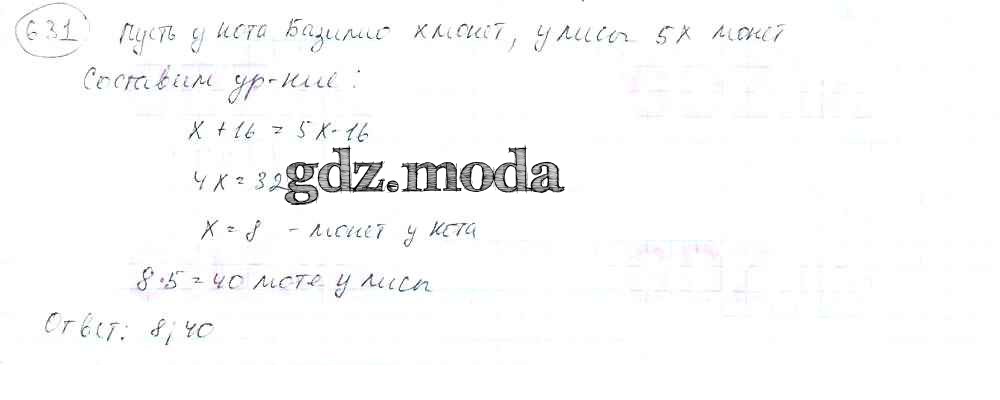 631 Пусть у кота Базилио х монет, у лисы 5х монет
Составим ур-ние:
х + 16 = 5х - 16
4х = 32
gdz.moda
х = 8 - монет у кота
8·5 = 40 моте у лисы
Ответ: 8; 40